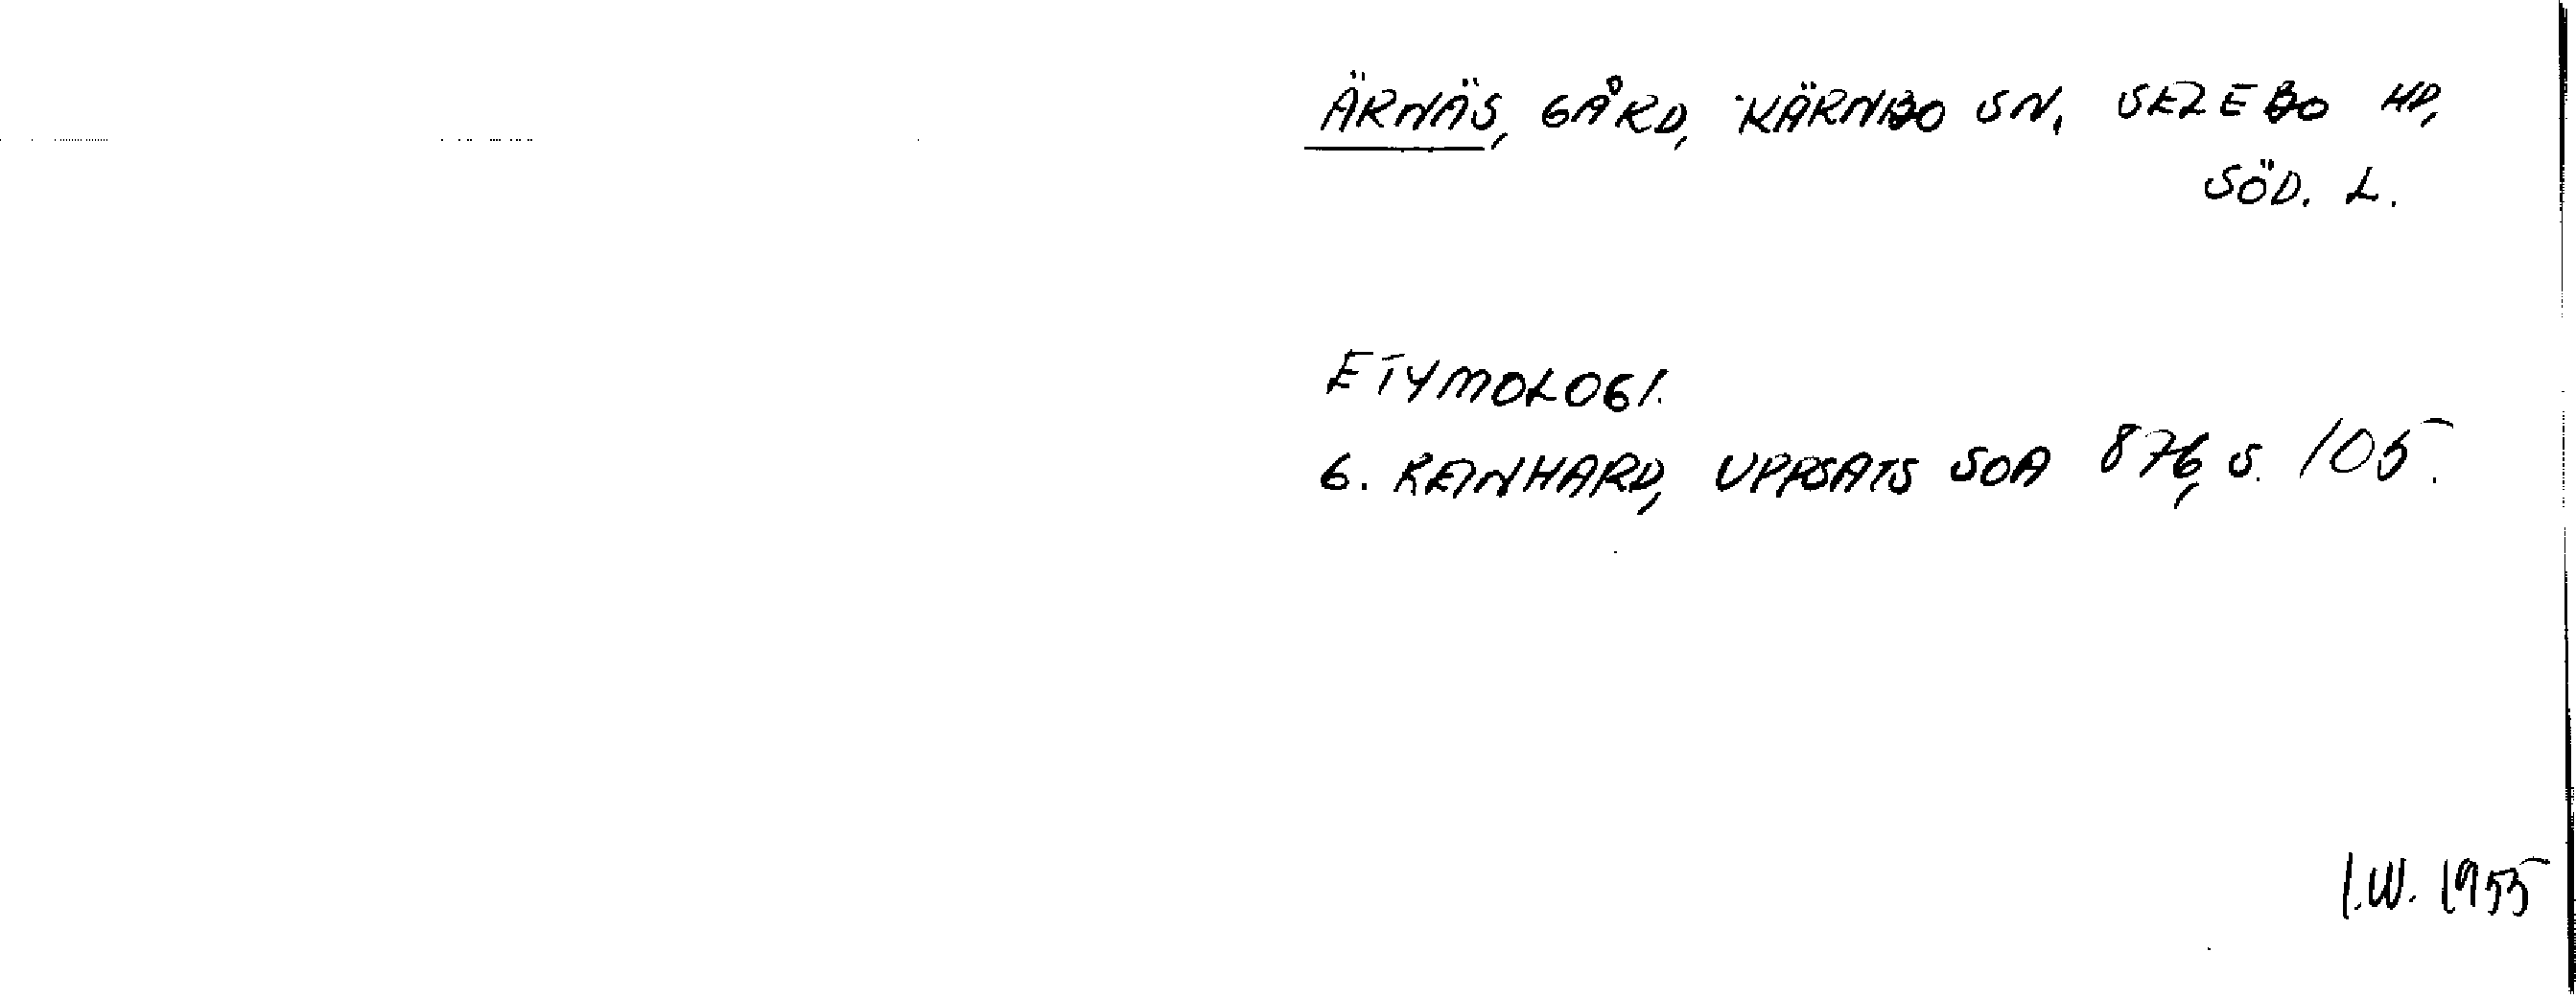 ÄRNÄS, GÅRD, KÄRNBO SN, SELEBO HD,
SÖD. L.
ETYMOLOGI.
G. REINHARD, UPPSATS SOA 876, S. 105.
I.W. 1955